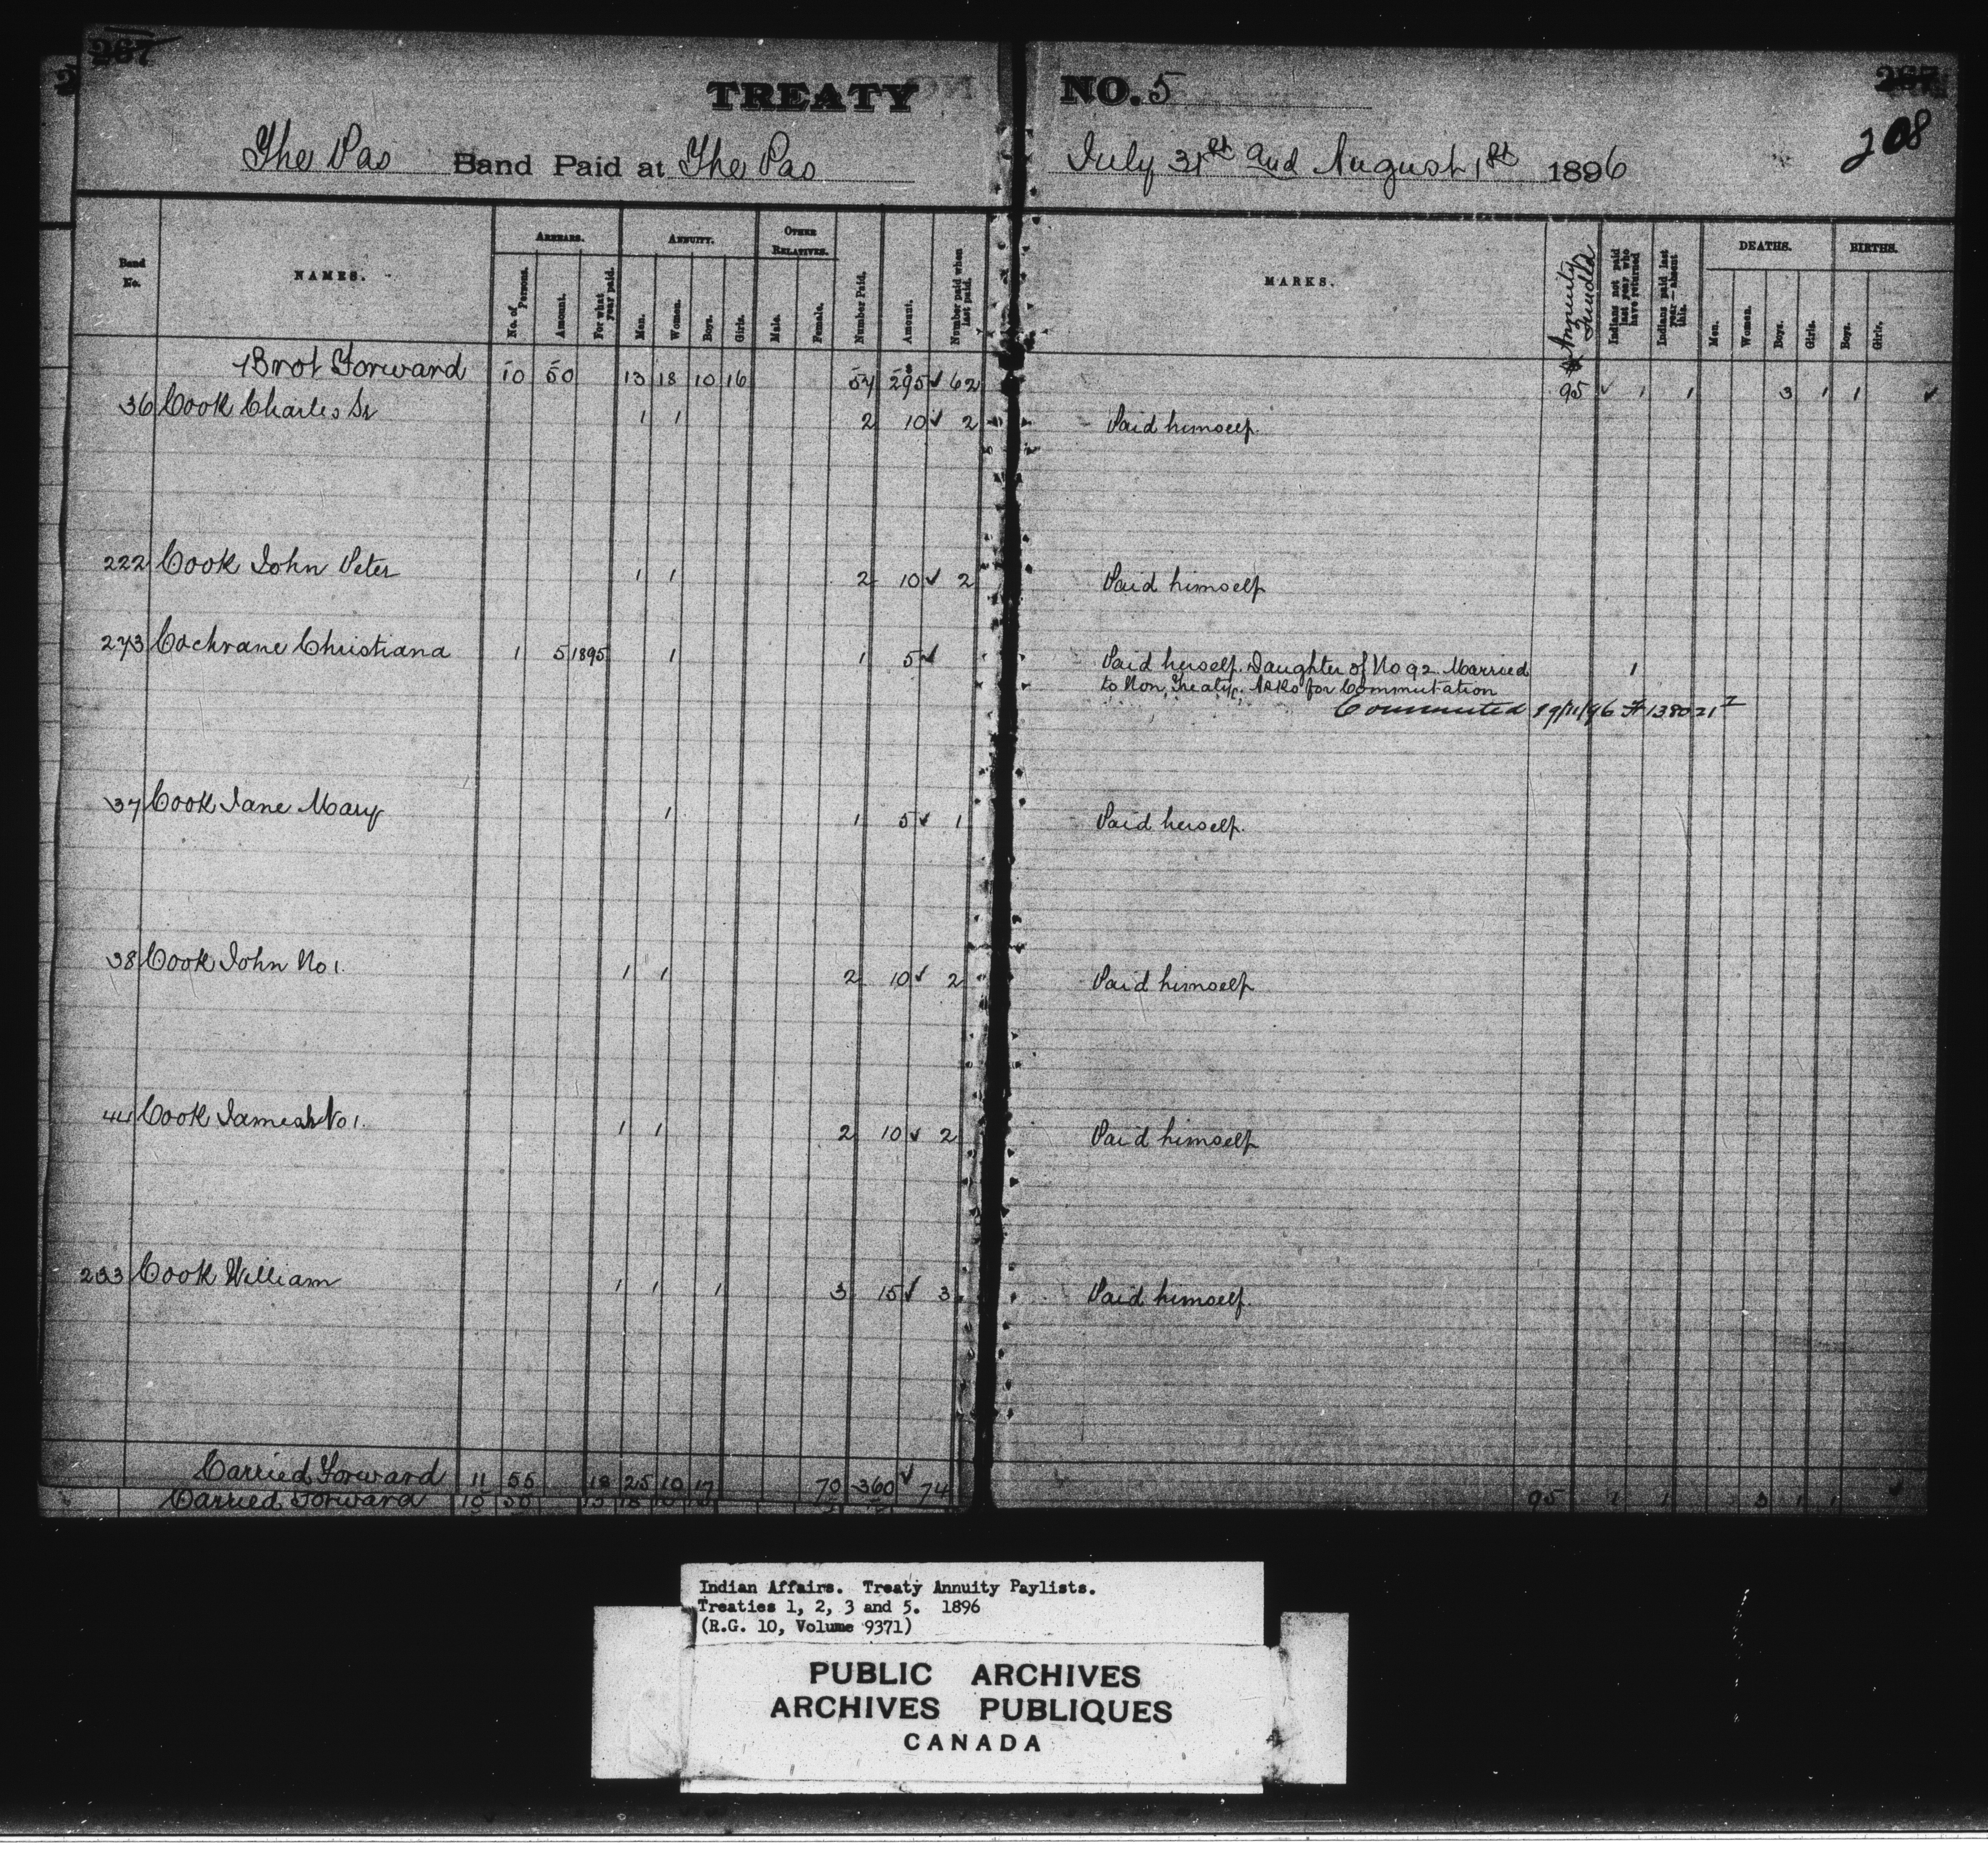 267
267
TREATY NO. 5
208
The Pas Band Paid at The Pas July 31st and August 1st 1896
Band No.
NAMES.
ARREARS.
No. of Persons.
Amount.
For what year paid.
ANNUITY.
Men.
Women.
Boys.
Girls.
OTHER RELATIVES.
Male.
Female.
Number Paid.
Amount.
Number paid when last paid.
MARKS.
Annuity
Indians not paid last year who have returned
Indians paid last year—absent this.
DEATHS.
Men.
Women.
Boys.
Girls.
BIRTHS.
Boys.
Girls.
Brot Forward 10 50 13 18 10 16 54 295 ✓ 62 95 ✓ 1 1 3 1 1 ✓
36 Cook Charles Sr 1 1 2 10 ✓ 2 Paid himself.
222 Cook John Peter 1 1 2 10 ✓ 2 Paid himself
273 Cochrane Christiana 1 5 1895 1 1 5 ✓ Paid herself. Daughter of No 92. Married 1
to Non, Treaty. Asks for Commutation
Commuted 19/11/96 # 138021
37 Cook Jane Mary 1 1 5 ✓ 1 Paid herself.
38 Cook John No 1. 1 1 2 10 ✓ 2 Paid himself
44 Cook James No 1. 1 1 2 10 ✓ 2 Paid himself
233 Cook William 1 1 1 3 15 ✓ 3 Paid himself.
Carried Forward 11 55 18 25 10 17 70 360 ✓ 74
Carried Forward 10 50 13 18 95 1 1 3 1 1 ✓
Indian Affairs. Treaty Annuity Paylists.
Treaties 1, 2, 3 and 5. 1896
(R.G. 10, Volume 9371)
PUBLIC ARCHIVES
ARCHIVES PUBLIQUES
CANADA